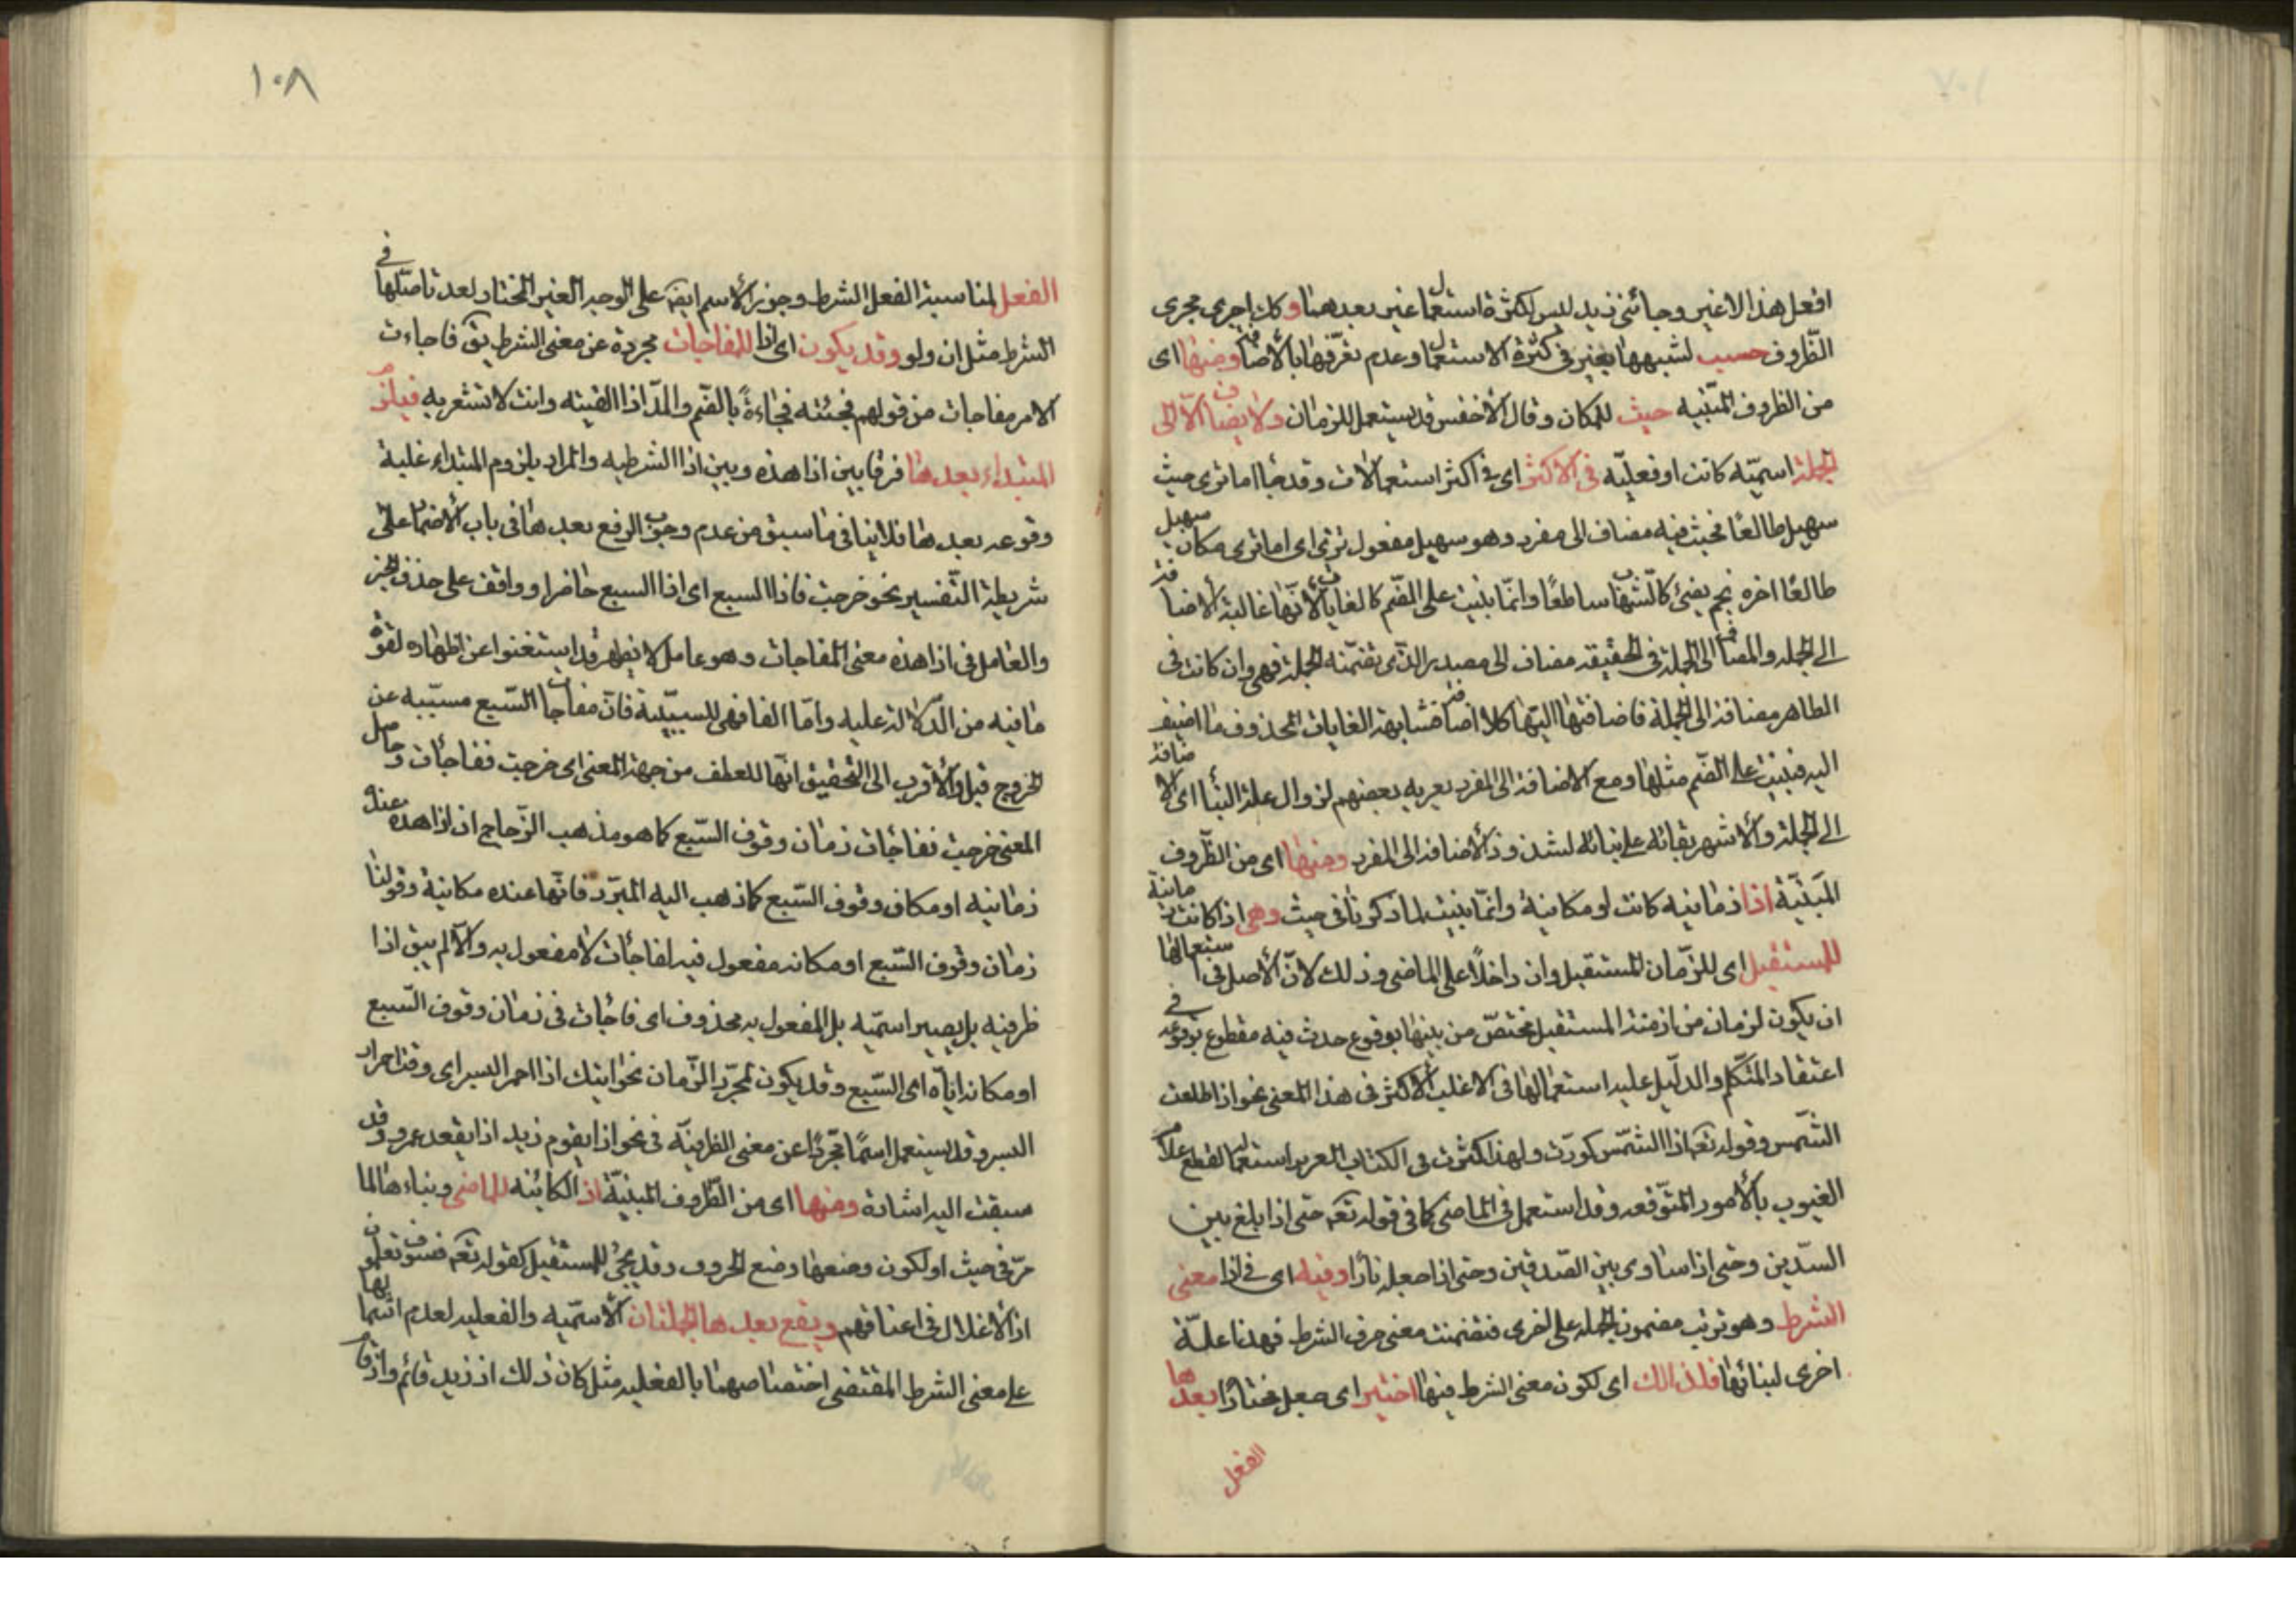 افعل هذا لا غير وجائنى زيد ليس لكثرة استعمال غير بعد هنا وكك اجرى مجرى
الظروف حسب لشبهها بغير فى كثرة الاستعمال وعدم تعرفها بالأضافة ومنها اى
من الظروف المبنيه حيث للمكان وقال الأخفش قد يستعمل للزمان ولا يضاف الا الى
الجملة اسميّه كانت او فعليّه فى الاكثر اى فى اكثر استعمالات وقد جا اما ترى حيث
سهيل طالعًا فحيث فيه مضاف الى مفرد وهو سهيل مفعول ترى اى اما ترى مكان سهيل
طالعًا اخره نجم يضئ كالشهاب ساطعًا وانّما بنيت على الضّم كالغايات لأنّها غالبة الأضافة
الى الجمله والمضاف الى الجملة فى الحقيقه مضاف الى مصدر الذى تضمّنه الجملة فهى وان كانت فى
الظاهر مضافة الى الجملة فاضافتها اليها كلا اضافة فشابهة الغايات المحذوف ما اضيف
اليه فبنيت على الضّم مثلها ومع الاضافة الى المفرد يعربه بعضهم لزوال علة البنأ اى الاضافة
الى الجملة والأشهر بقائه على بنائه لشذوذ الأضافة الى المفرد ومنها اى من الظّروف
المبنيّة اذا زمانيه كانت او مكانية وانّما بنيت لما ذكرنا فى حيث وهى اذ اكانت زمانية
للمستقبل اى للزّمان المستقبل وان داخلاً على الماضى وذلك لانّ الأصل فى استعمالها
ان يكون لزمان من ازمنة المستقبل مختصّ من بينها بوقوع حدث فيه مقطوع بوقوعه فى
اعتقاد المتكلم والدليل عليه استعمالها فى الاغلب الأكثر فى هذا المعنى نحو اذا طلعت
الشّمس وقوله تعه اذا الشّمس كورّت ولهذا كثرت فى الكتاب العزيز استعماله لقطع علام
الغيوب بالأمور المتوّقعه وقد استعمل فى الماضى كما فى قوله تعه حتى اذا بلغ بين
السدّين وحتى اذا ساوى بين الصّدفين وحتى اذا جعله نارًا وفيه اى فى اذا معنى
الشرط وهو ترتب مضمون الجمله على اخرى فتضمنت معنى حرف الشرط فهذا علّة
اخرى لبنائها فلذالك اى لكون معنى الشرط فيها اختير اى جعل مختارًا بعدها
الفعل
١٠٨
الفعل لمناسبة الفعل الشرط وجوز الأسم ايضه على الوجه الغير المختار لعد تاصّلها فى
الشرط مثل ان ولو وقد يكون اى اذا للمفاجات مجردة عن معنى الشرط يقه فاجاءت
الامر مفاجات من قولهم فجئته فجاءةً بالضّم والمدّ اذا القيته وانت لا تشعر به فيلزم
المبتداء بعدها فرقا بين اذا هذه وبين اذا الشرطيه والمراد بلزوم المبتداء غلبة
وقوعه بعدها فلا ينافى ما سبق من عدم وجوب الرفع بعدها فى باب الأضمار على
شريطة التّفسير نحو خرجت فاذا السبع اى اذا السبع حاضر او واقف على حذف الخبر
والعامل فى اذا هذه معنى المفاجات وهو عامل لا يظهر قد استغنوا عن اظهاره لقوّة
ما فيه من الدّلالة عليه وامّا الفا فهى للسببيّة فانّ مفاجات السّبع مسبّبه عن
الخروج قيل والأقرب الى التحقيق انّها للعطف من جهة المعنى اى خرجت ففاجأت وحاصل
المعنى خرجت ففاجأت زمان وقوف السّبع كما هو مذهب الزّجاج ان اذا هذه عنده
زمانيه او مكان وقوف السّبع كما ذهب اليه المبرّد فانّها عنده مكانية وقولنا
زمان وقوف السّبع او مكانه مفعول فيه لفاجأت لا مفعول به والاّ لم يبق اذا
ظرفيه بل يصير اسميّه بل المفعول به محذوف اى فاجأت فى زمان وقوف السّبع
او مكانه ايّاه اى السّبع وقد يكون لمجرّد الزّمان نحو اتيك اذا احمر البسر اى وقت احرار
البسر وقد يستعمل اسمًا مجرّدًا عن معنى الظرفيّة فى نحو اذا يقوم زيد اذا يقعد عمرو وقد
سبقت اليه اشارة ومنها اى من الظّروف المبنيّة اذ الكائنه للماضى وبناءها لما
مرّ فى حيث او لكون وضعها وضع الحروف وقد يجئ للمستقبل كقوله تعه فسوف تعلمون
اذ الأغلال فى اعناقهم ويقع بعدها الجملتان الأسميّه والفعليه لعدم اشتمالها
على معنى الشرط المقتضى اختصاصها بالفعليه مثل كان ذلك اذ زيد قائم واذ قام